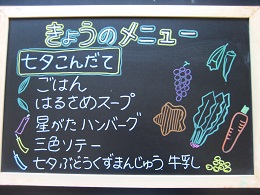 きょうのメニュー
七夕こんだて
ごはん
はるさめスープ
星がたハンバーグ
三色ソテー
七夕ぶどうくずまんじゅう 牛乳し